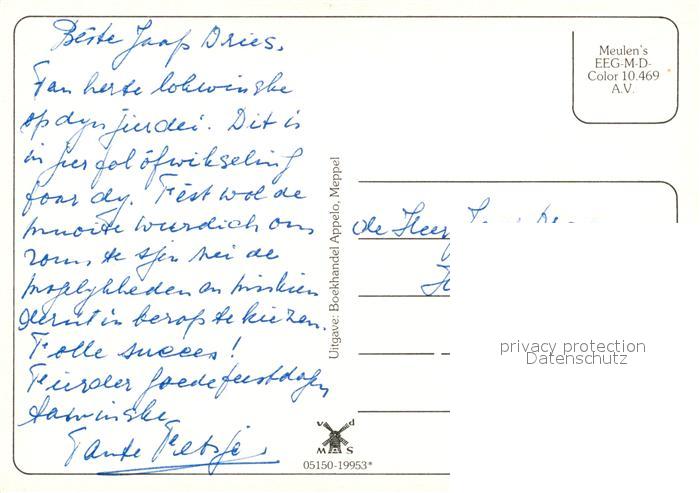 Bêste Jaap Dries,
Fan herte lokwinske
op dyn jierdei. Dit is
in jier fol ôfwikseling
foar dy. Fêst wol de
muoite wurdich om
rom te sjen nei de
mogelykheden en miskien
derut in berop te kiezen.
Folle succes!
Fierder goede feestdagen
tawinske
Tante Fetsje
Uitgave: Boekhandel Appelo, Meppel
Meulen's
EEG-M-D-
Color 10.469
A.V.
de Heer Jaap
v d
M S
05150-19953*
privacy protection
Datenschutz